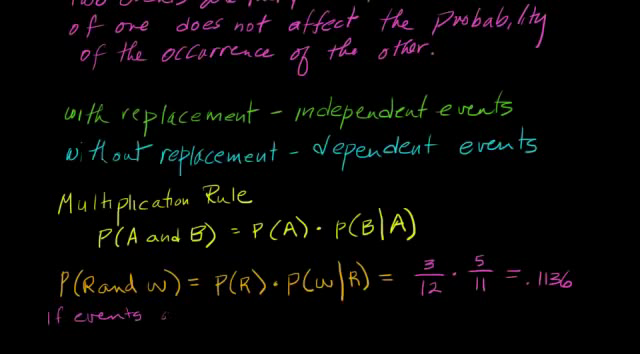 of one does not affect the probability
of the occurrence of the other.
with replacement - independent events
without replacement - dependent events
Multiplication Rule
P(A and B) = P(A) · P(B|A)
P(R and W) = P(R) · P(W|R) = 3/12 · 5/11 = .1136
If events